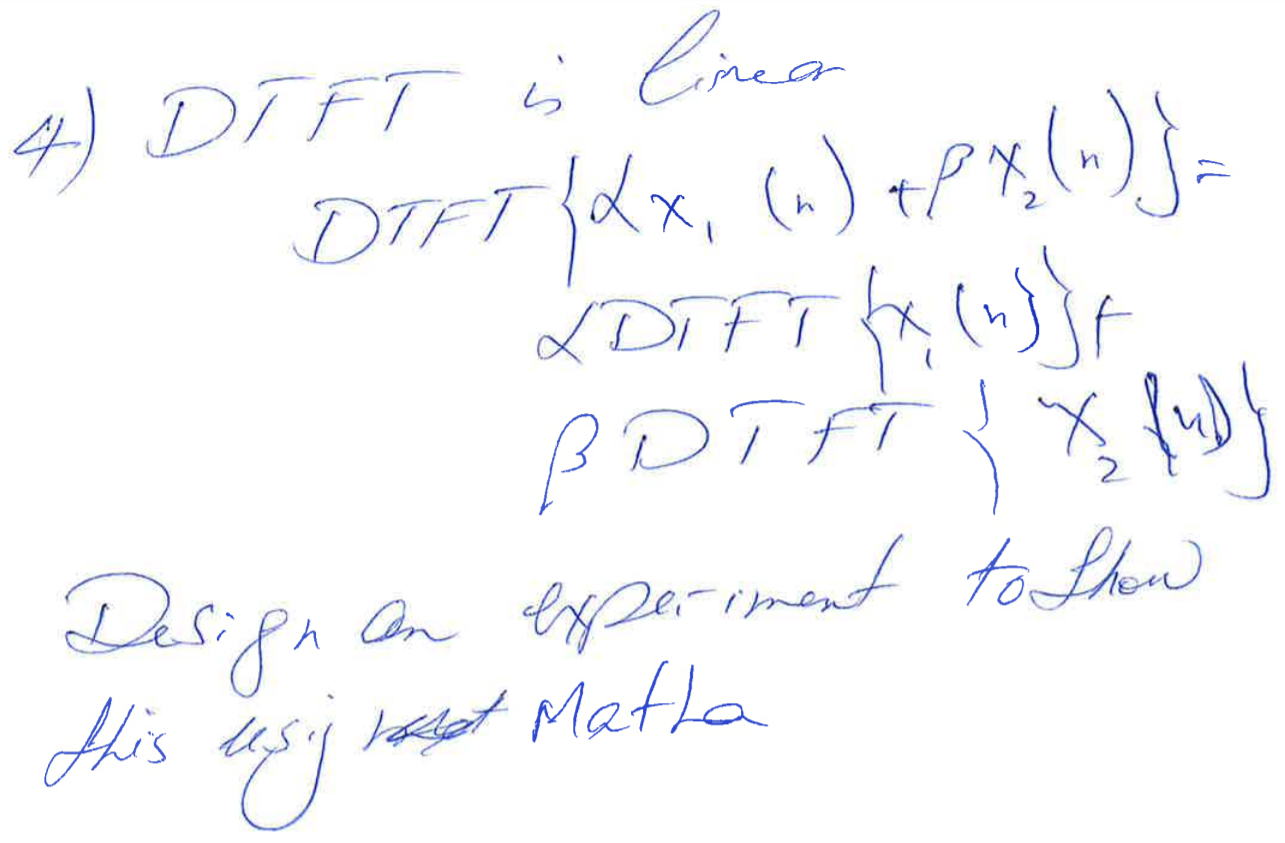 4) DTFT is linear
DTFT{αx₁(n) + βx₂(n)} =
αDTFT{x₁(n)} +
βDTFT{x₂(n)}
Design an experiment to show
this usig Matla